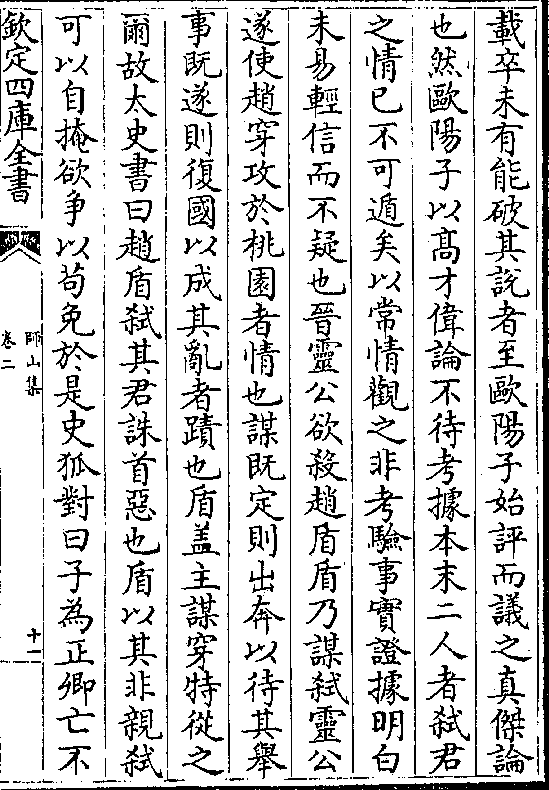 載卒未有能破其說者至歐陽子始評而議之真傑論
也然歐陽子以髙才偉論不待考據本末二人者弑君
之情已不可遁矣以常情觀之非考驗事實證據明白
未易輕信而不疑也晉靈公欲殺趙盾盾乃謀弑靈公
遂使趙穿攻於桃園者情也謀既定則出奔以待其舉
事既遂則復國以成其亂者蹟也盾盖主謀穿特從之
爾故太史書曰趙盾弑其君誅首惡也盾以其非親弑
可以自掩欲争以苟免於是史狐對曰子為正卿亡不
欽定四庫全書
師山集
卷二
十一